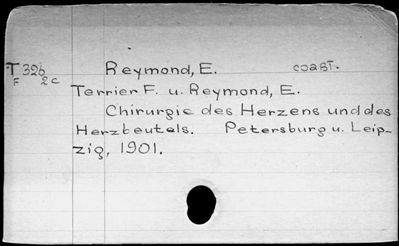 T326 Reymond, E. coast.
F 2c
Terrier F. u. Reymond, E.
Chirurgie des Herzens und des
Herzbeutels. Petersburg u. Leip-
zig, 1901.